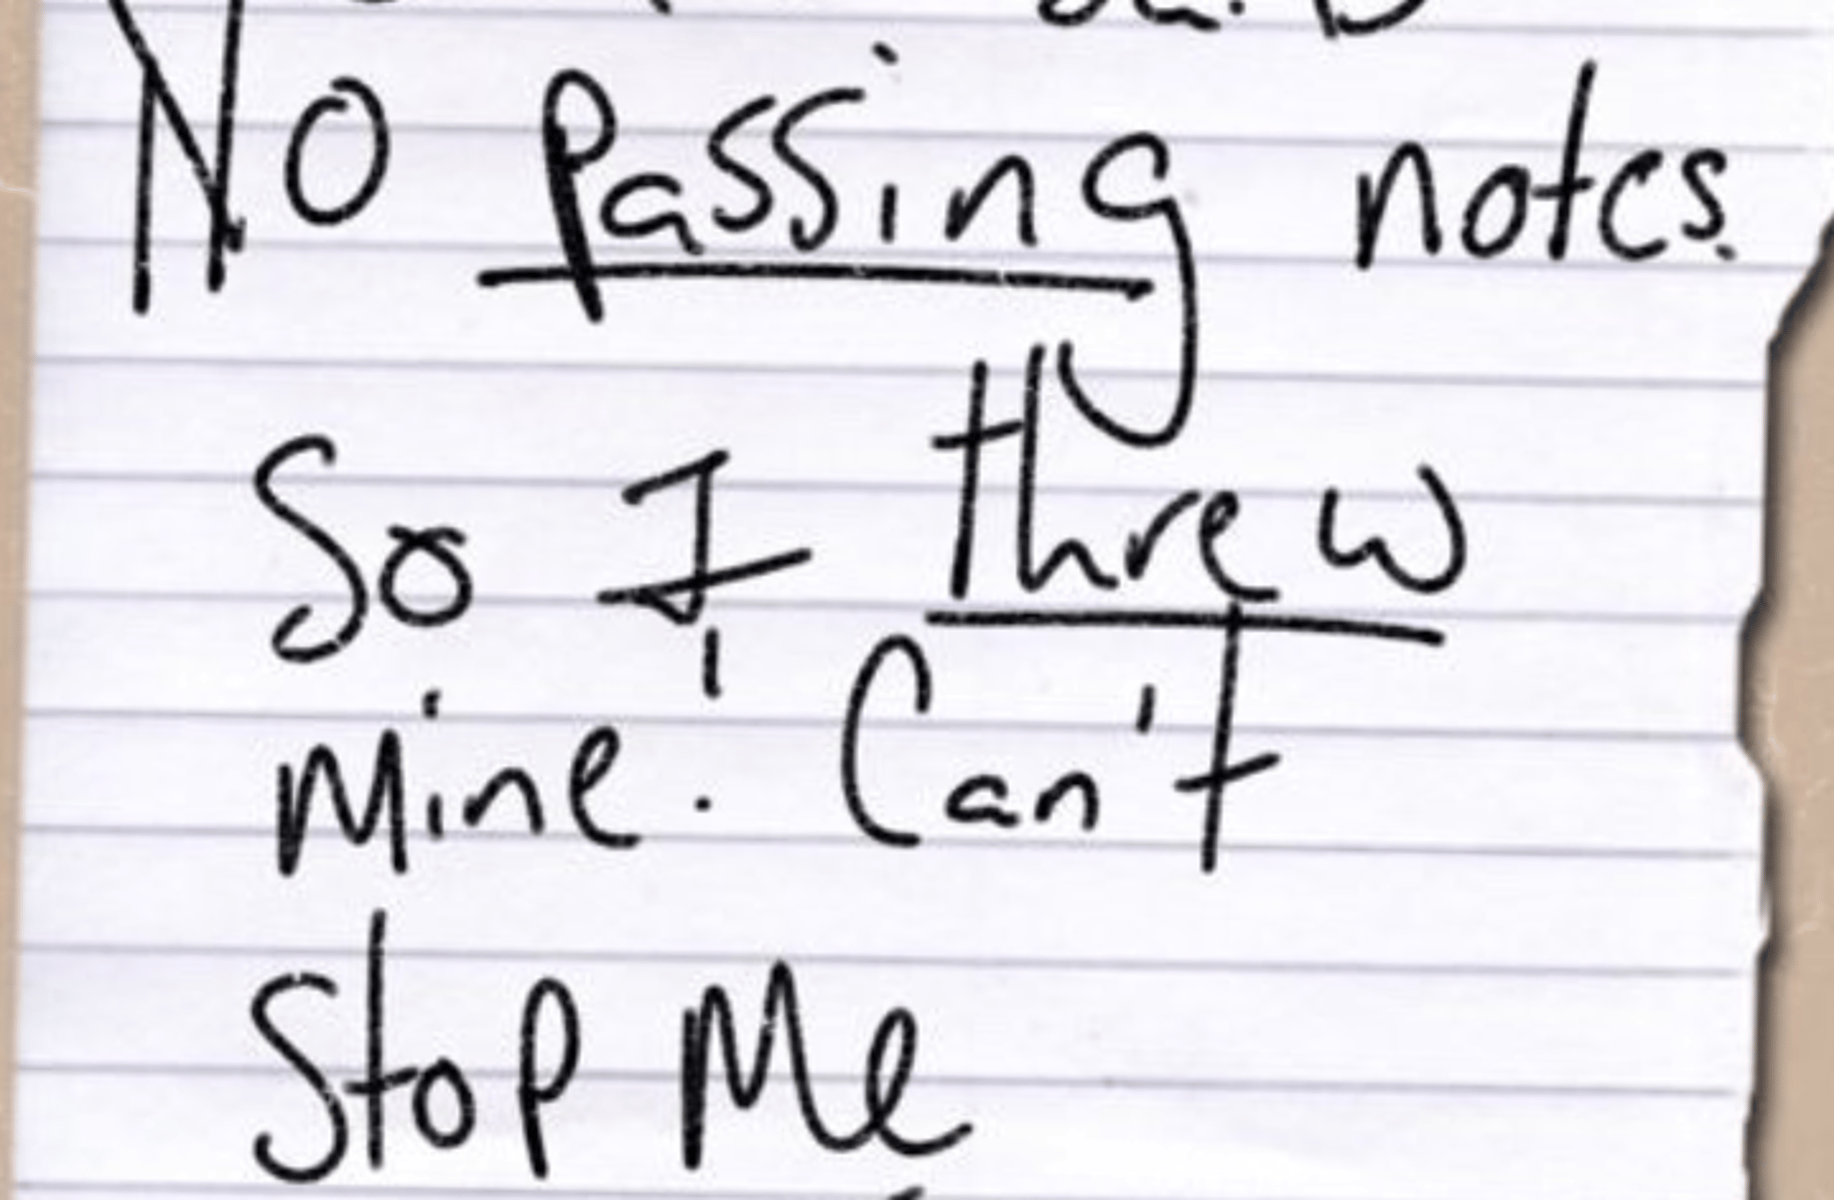 No passing notes.
So I threw
Mine! Can't
Stop Me